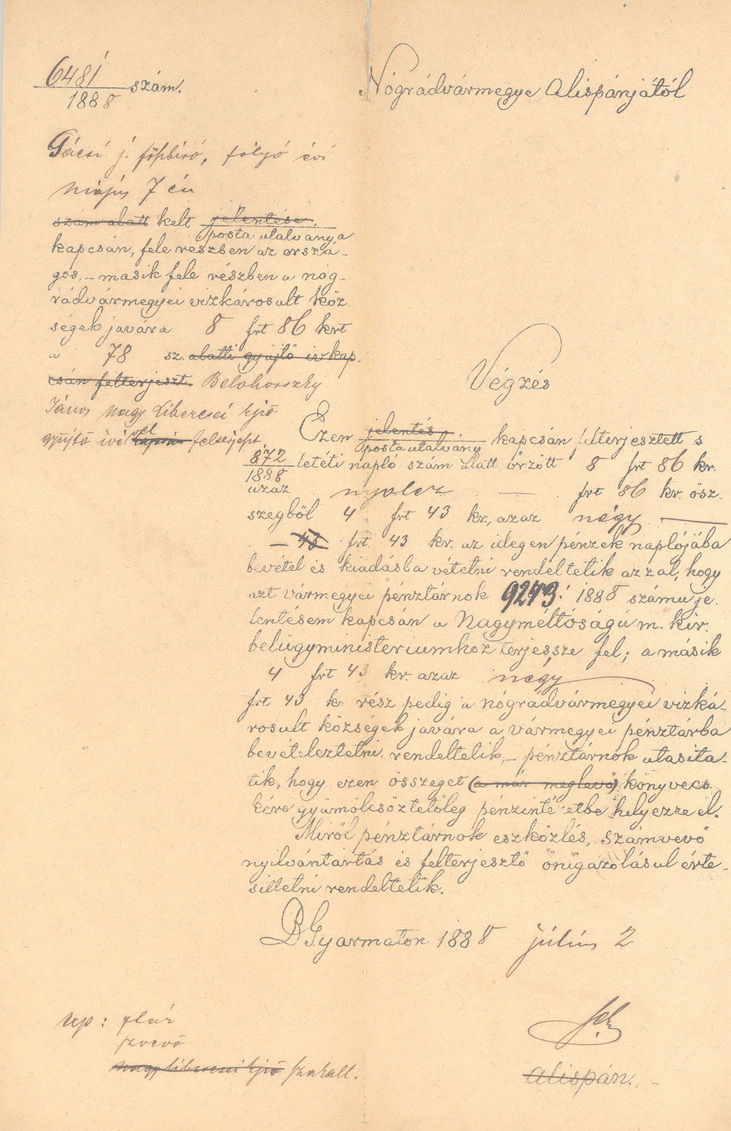 6481
1888 szám.
Nógrádvármegye Alispánjától
Gácsi j. főbiró, folyó évi
május 7 én
szám alatt kelt jelentése,
posta utalványa
kapcsán, fele részben az orszá-
gos, – másik fele részben a nóg-
rádvármegyei vizkárosult köz
ségek javára 8 frt 86 krt
a 78 sz. alatti gyűjtő iv kap-
csán felterjeszt. Belohorszky
János nagy libercsei kjző
gyűjtő ivé vel felterjeszt
Végzés
Ezen jelentés
posta utalvány kapcsán felterjesztett s
872
1888 letéti napló szám alatt őrzött 8 frt 86 kr.
azaz nyolcz — frt 86 kr. ösz-
szegből 4 frt 43 kr, azaz négy —
– 43 frt. 43 kr. az idegen pénzek naplójába
bevétel és kiadásba vétetni rendeltetik azzal, hogy
azt vármegyei pénztárnok 9243! 1888 számu je
lentésem kapcsán a Nagyméltóságú m. kir.
belügyministeriumhoz terjessze fel; a másik
4 frt 43 kr. azaz négy
frt 43 kr rész pedig a nógrádvármegyei vizká-
rosult községek javára a vármegyei pénztárba
bevételeztetni rendeltetik, – pénztárnok utasita-
tik, hogy ezen összeget (a már meglevő) könyvecs
kére gyümölcsöztetőleg pénzintézetbe helyezze el.
Miről pénztárnok eszközlés, számvevő
nyilvántartás és felterjesztő önigazolásul érte-
sittetni rendeltetik.
BGyarmaton 1888 július 2
alispán.
nagy libercsei kjző